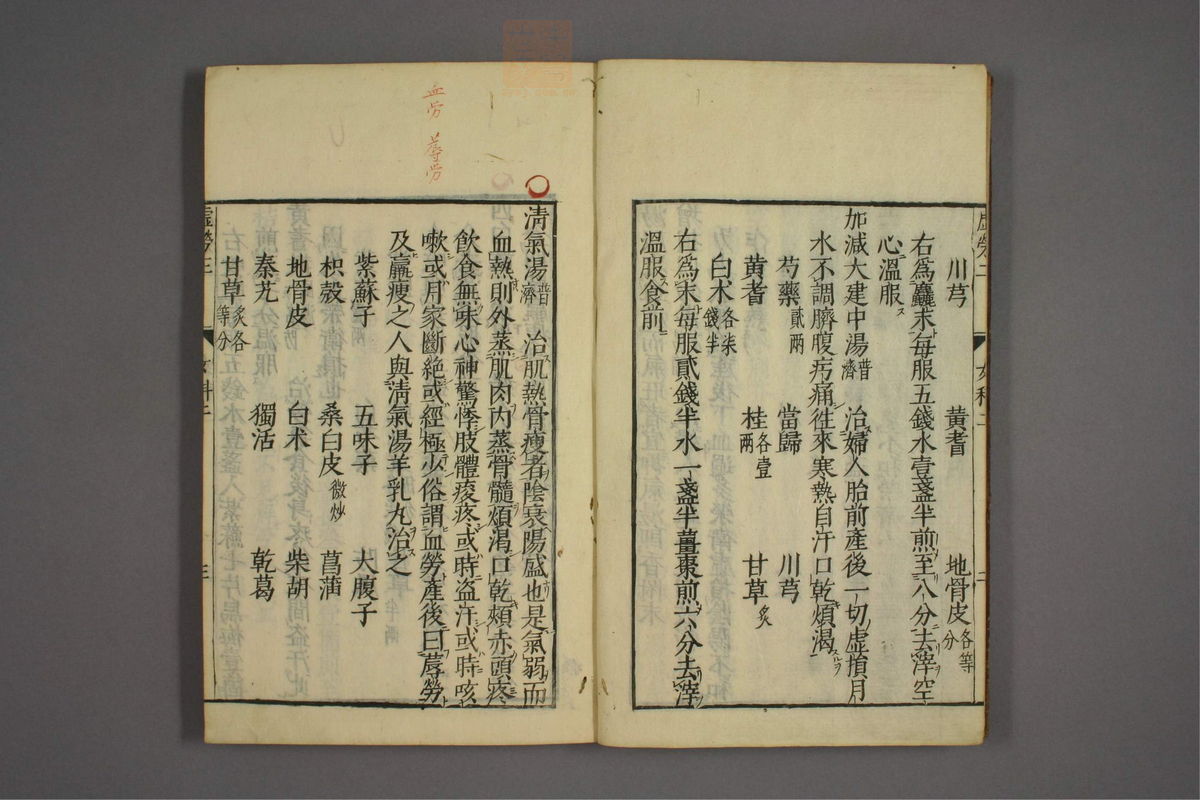 川芎　黄耆　地骨皮各等分
右爲麤末每服五錢水壹盞半煎至八分去滓空
心溫服
加減大建中湯普濟　治婦人胎前產後一切虛損月
水不調臍腹㽱痛徃來寒熱自汗口乾煩渴
芍藥貳兩　當歸　川芎
黄耆　桂各壹兩　甘草炙
白术各柒錢半
右爲末每服貳錢半水一盞半薑棗煎六分去滓
溫服食前
血労　蓐労
清氣湯普濟　治肌熱骨瘦者陰衰陽盛也是氣弱而
血熱則外蒸肌肉内蒸骨髓煩渴口乾頰赤頭疼
飲食無味心神驚悸肢體痠疼或時盗汗或時咳
嗽或月家斷絶或經極少俗謂血勞產後曰蓐勞
及羸瘦之人與清氣湯羊乳丸治之
紫蘇子　五味子　大腹子
枳殼　桑白皮微炒　菖蒲
地骨皮　白术　柴胡
秦艽　獨活　乾葛
甘草炙各等分
虛勞三　女科二　三